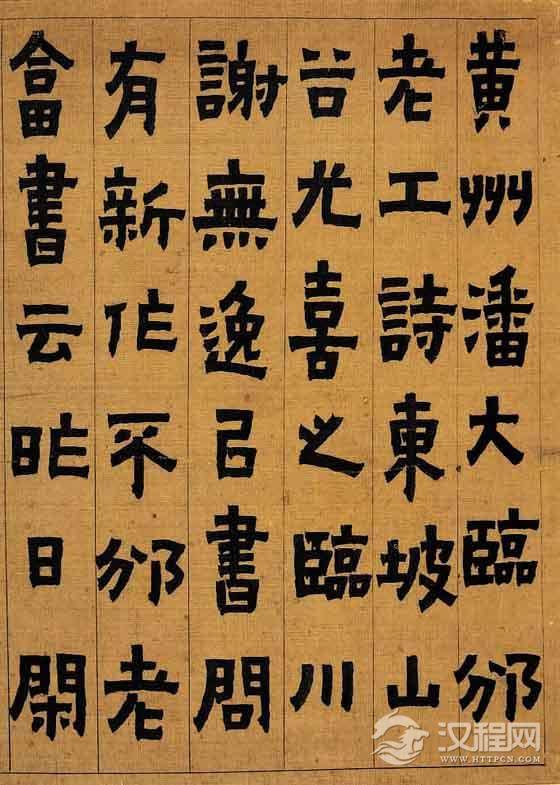 黄州潘大臨邠
老工詩東坡山
谷尤喜之臨川
謝無逸㠯書問
有新作不邠老
畣書云昨日閑
汉程网
WWW.HTTPCN.COM